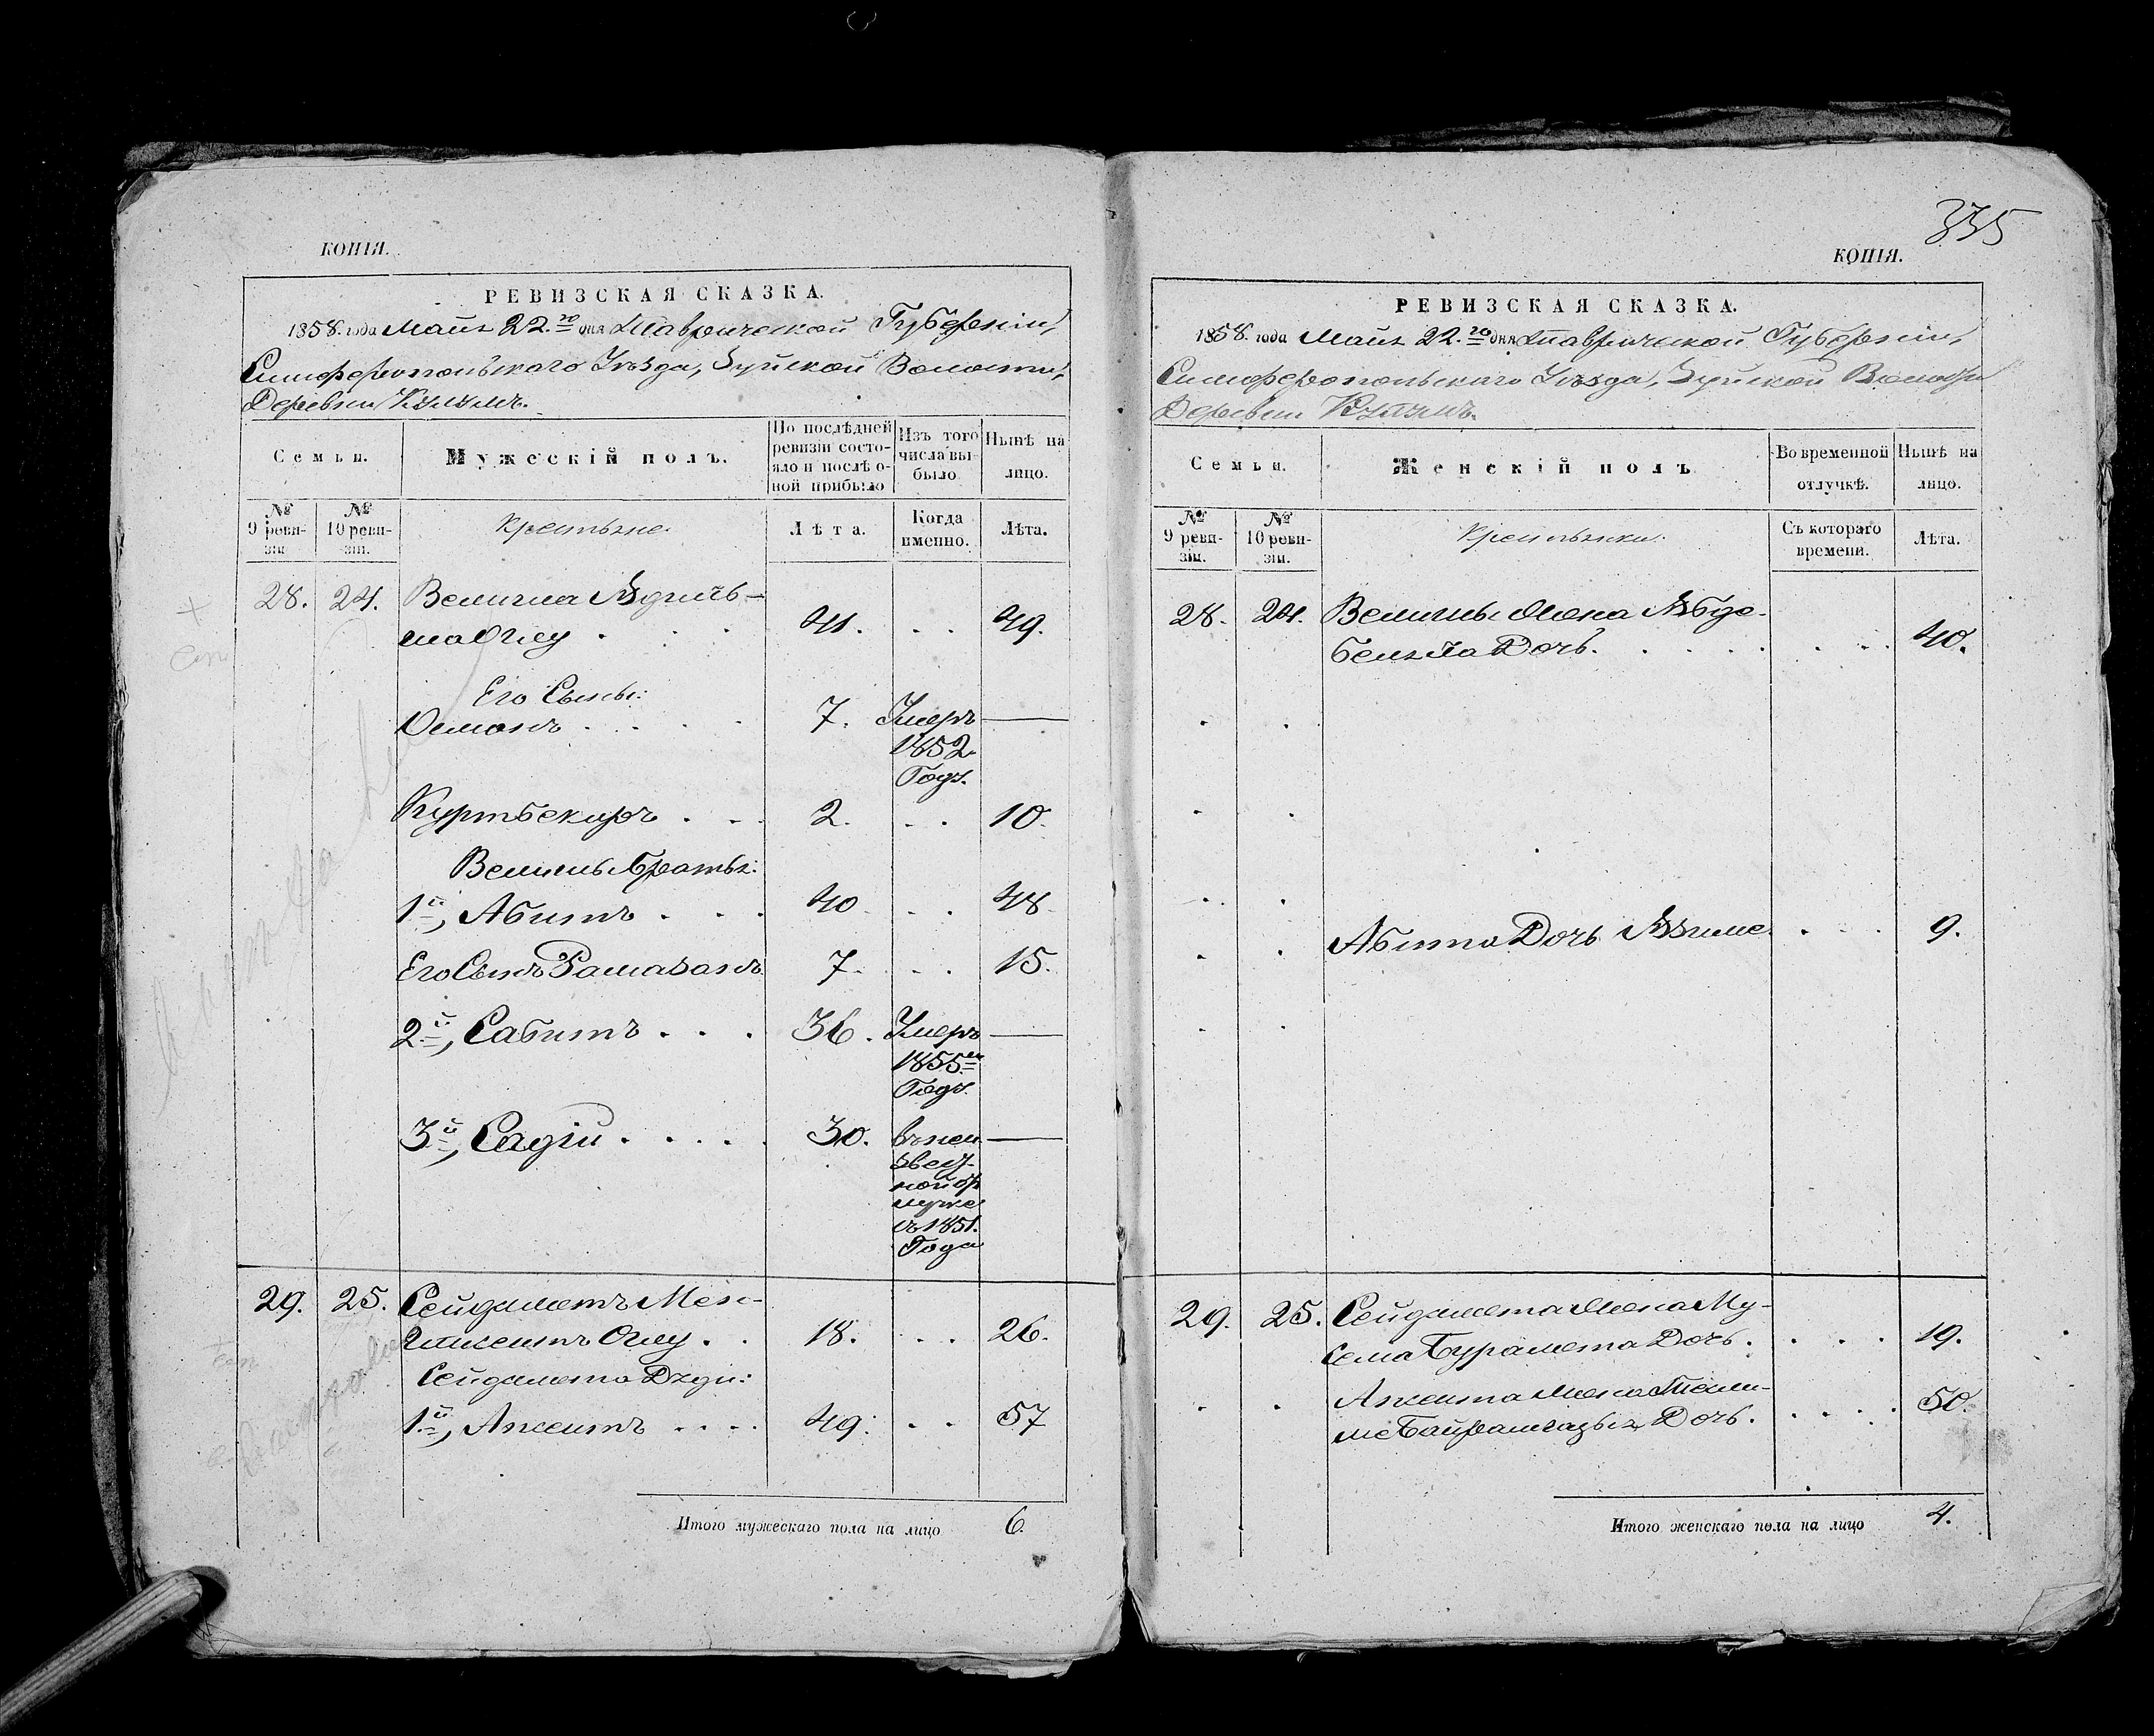 КОПІЯ.
РЕВИЗСКАЯ СКАЗКА.
1858. года Маія 22.го дня Таврической Губерніи,
Симферопольскаго Уѣзда, Зуйской Волости,
Деревни
Семьи.
Мужескій полъ.
По послѣдней ревизіи состояло и послѣ оной прибыло
Изъ того числа выбыло
Нынѣ на лицо.
№ 9 ревизіи.
№ 10 ревизіи.
Крестьяне.
Лѣта.
Когда именно.
Лѣта.
28. 24. Велиша
Оглу . . . 41. . . 49.
Его Сыны:
Османъ . . . . 7. Умеръ —
1852
Году.
Куртбекиръ . . . 2. . . 10.
Братья:
1й, Абитъ . . . 40. . . 48.
Его Сынъ Рамазанъ 7. . . 15.
2й, Сабитъ . . . 36. Умеръ —
1855м
Году.
3й, Садій . . . . . 30. въ неи —
звест-
ной от
лучке
съ 1851.
Года
29. 25. Сейдаметъ
Оглу . . 18. . . 26.
Сейдамета Дяди:
1й, Ажеитъ . . . . 49. . . 57
Итого мужескаго пола на лицо 6.
335
КОПІЯ.
РЕВИЗСКАЯ СКАЗКА.
1858. года Маія 22.го дня Таврической Губерніи,
Симферопольскаго Уѣзда, Зуйской Волости
Деревни
Семьи.
Женскій полъ
Во временной отлучкѣ.
Нынѣ на лицо.
№ 9 ревизіи.
№ 10 ревизіи.
Крестьянки.
Съ котораго времени.
Лѣта.
28. 24. Жена
Дочь. . . . . . . . 40.
Абита Дочь . . . 9.
29. 25. Сейдамета Жена Му-
Дочь. . . . . 19.
Ажеита Жена
Дочь. . . . . 50.
Итого женскаго пола на лицо 4.